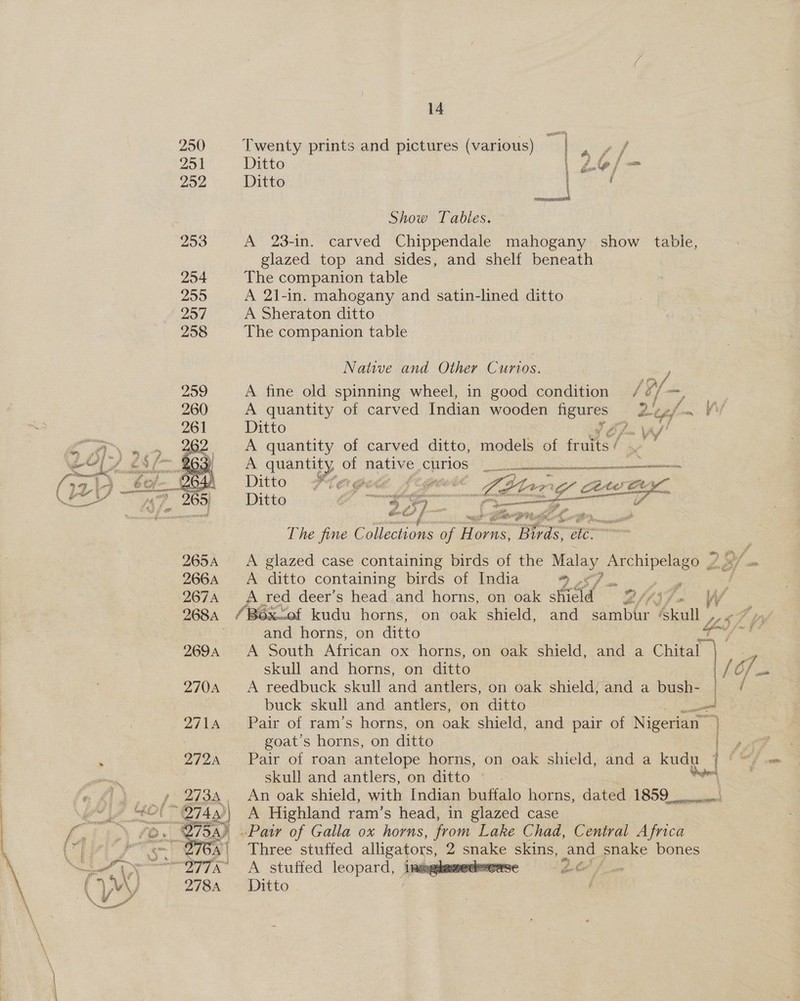 14
250 Twenty prints and pictures (various)
251 Ditto 26/-
252 Ditto
Show Tables.
253 A 23-in. carved Chippendale mahogany show table,
glazed top and sides, and shelf beneath
254 The companion table
255 A 21-in. mahogany and satin-lined ditto
257 A Sheraton ditto
258 The companion table
Native and Other Curios.
259 A fine old spinning wheel, in good condition
260 A quantity of carved Indian wooden figures
261 Ditto
262 A quantity of carved ditto, models of fruits
263 A quantity of native curios
264A Ditto
265 Ditto
The fine Collections of Horns, Birds, etc.
265A A glazed case containing birds of the Malay Archipelago
266A A ditto containing birds of India
267A A red deer's head and horns, on oak shield
268A Box of kudu horns, on oak shield, and sambur skull
and horns, on ditto
269A A South African ox horns, on oak shield, and a Chital
skull and horns, on ditto
270A A reedbuck skull and antlers, on oak shield, and a bush-
buck skull and antlers, on ditto
271A Pair of ram's horns, on oak shield, and pair of Nigerian
goat's horns, on ditto
272A Pair of roan antelope horns, on oak shield, and a kudu
skull and antlers, on ditto
273A An oak shield, with Indian buffalo horns, dated 1859
274A A Highland ram's head, in glazed case
275A Pair of Galla ox horns, from Lake Chad, Central Africa
276A Three stuffed alligators, 2 snake skins, and snake bones
277A A stuffed leopard,
278A Ditto